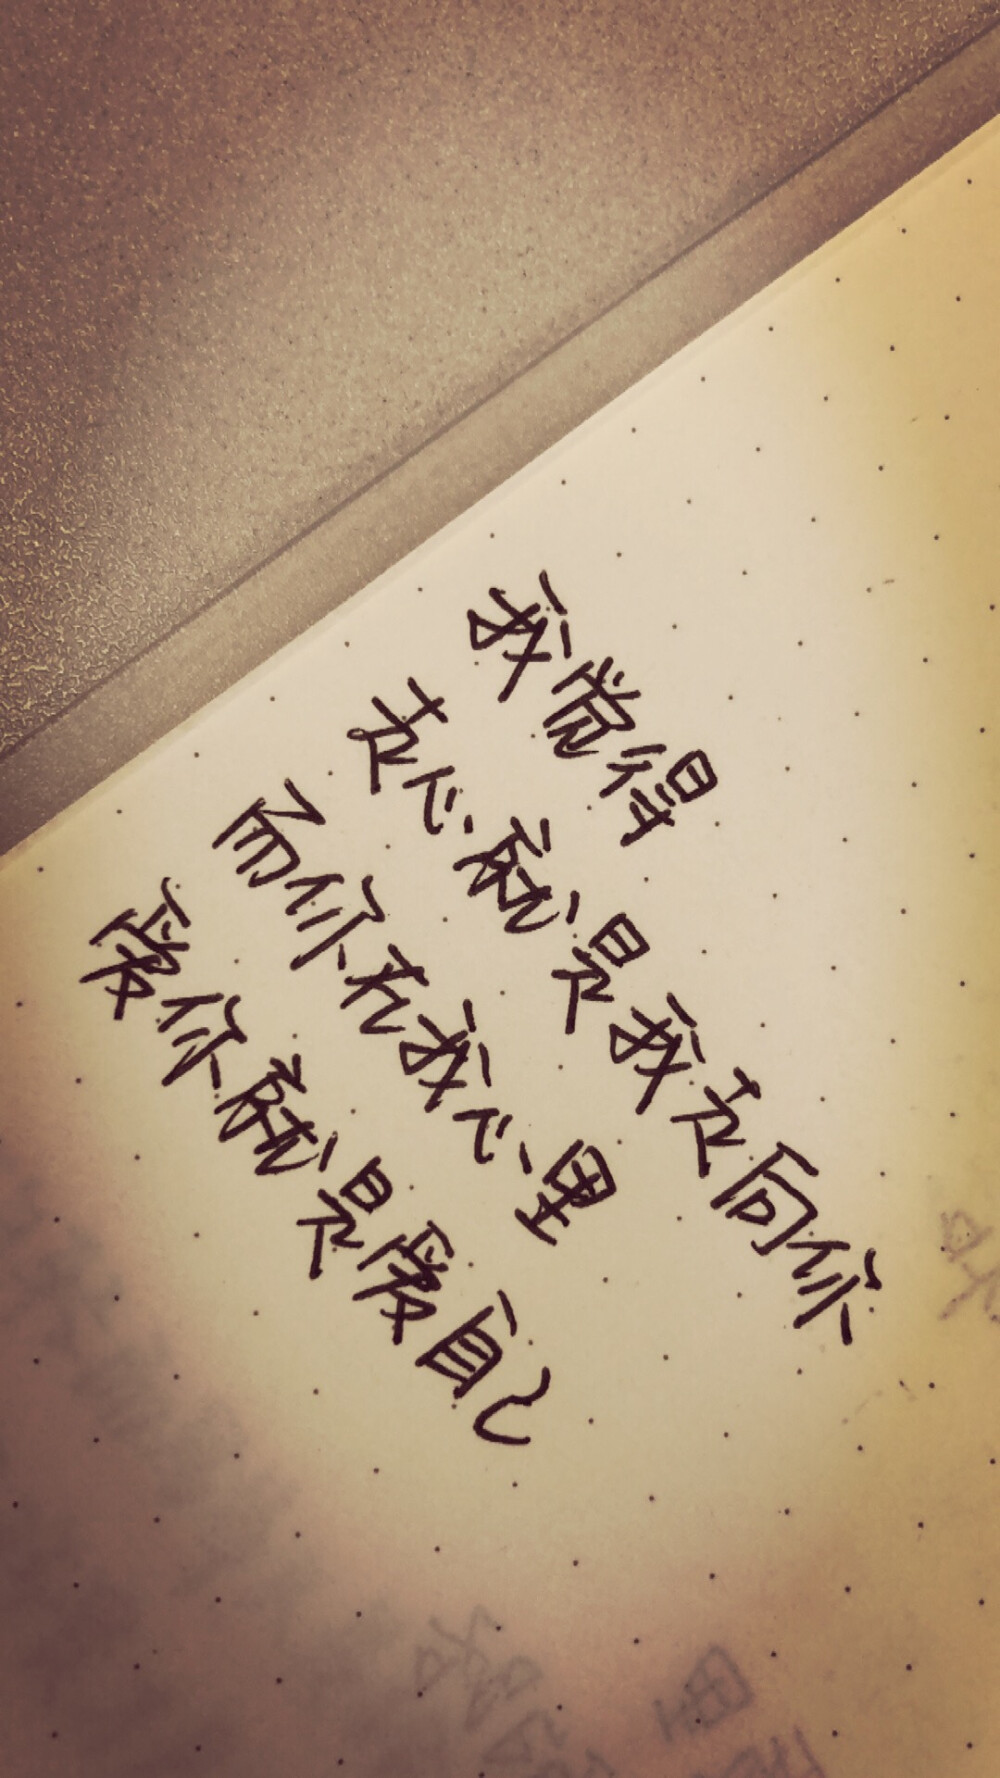 我觉得
走心就是我走向你
而你在我心里
爱你就是爱自己